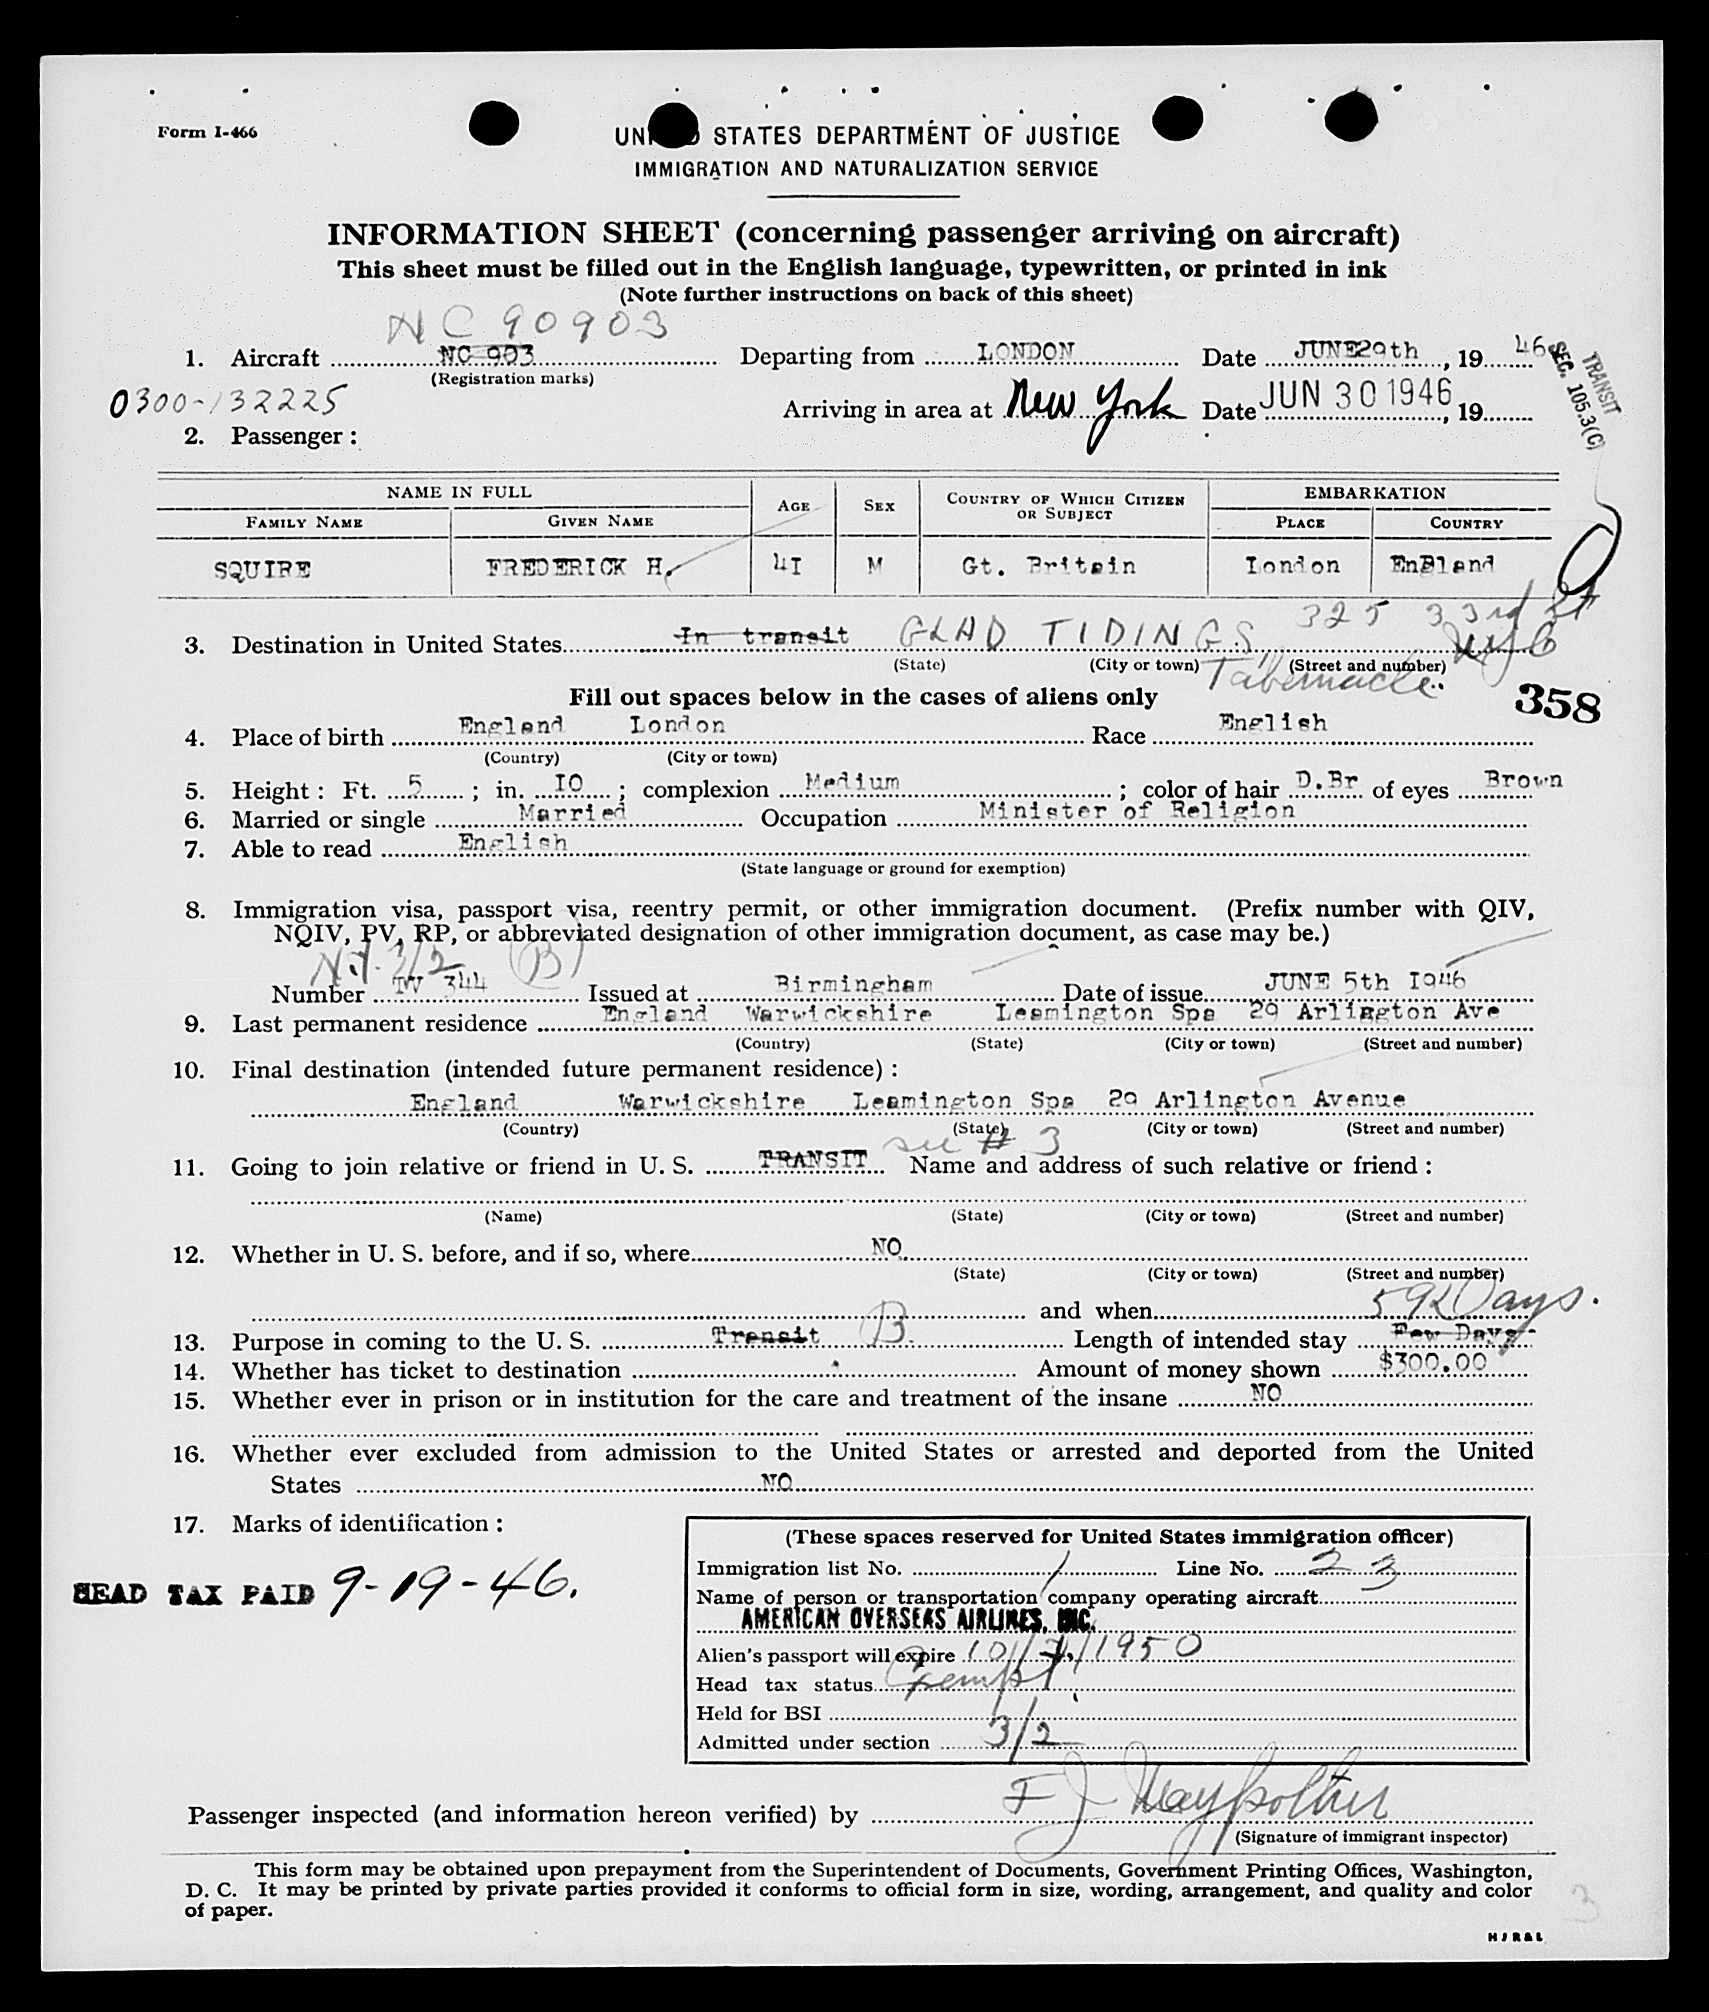 Form I-466
UNITED STATES DEPARTMENT OF JUSTICE
IMMIGRATION AND NATURALIZATION SERVICE
INFORMATION SHEET (concerning passenger arriving on aircraft)
This sheet must be filled out in the English language, typewritten, or printed in ink
(Note further instructions on back of this sheet)
NC 90903
1. Aircraft NC 903 Departing from LONDON Date JUNE29th, 19 46
(Registration marks)
TRANSIT
SEC. 105.3(C)
0300-132225
Arriving in area at New York Date JUN 30 1946, 19
2. Passenger:
NAME IN FULL AGE SEX COUNTRY OF WHICH CITIZEN OR SUBJECT EMBARKATION
FAMILY NAME GIVEN NAME PLACE COUNTRY
SQUIRE FREDERICK H. 4I M Gt. Britain London EnBland
325 33rd St
3. Destination in United States In transit GLAD TIDINGS NYC
(State) (City or town) (Street and number)
Tabernacle.
Fill out spaces below in the cases of aliens only
358
4. Place of birth England London Race English
(Country) (City or town)
5. Height: Ft. 5; in. IO; complexion Medium; color of hair D.Br of eyes Brown
6. Married or single Married Occupation Minister of Religion
7. Able to read English
(State language or ground for exemption)
8. Immigration visa, passport visa, reentry permit, or other immigration document. (Prefix number with QIV,
NQIV, PV, RP, or abbreviated designation of other immigration document, as case may be.)
3/2 (B)
Number TV 344 Issued at Birmingham Date of issue JUNE 5th I946
9. Last permanent residence England Warwickshire Leamington Spa 29 Arlington Ave
(Country) (State) (City or town) (Street and number)
10. Final destination (intended future permanent residence):
England Warwickshire Leamington Spa 29 Arlington Avenue
(Country) (State) (City or town) (Street and number)
see # 3
11. Going to join relative or friend in U. S. TRANSIT Name and address of such relative or friend:
(Name) (State) (City or town) (Street and number)
12. Whether in U. S. before, and if so, where NO
(State) (City or town) (Street and number)
and when
Days.
13. Purpose in coming to the U. S. Transit B. Length of intended stay Few Days
14. Whether has ticket to destination Amount of money shown $300.00
15. Whether ever in prison or in institution for the care and treatment of the insane NO
16. Whether ever excluded from admission to the United States or arrested and deported from the United
States NO
17. Marks of identification:
HEAD TAX PAID 9-19-46.
(These spaces reserved for United States immigration officer)
Immigration list No. 1 Line No. 23
Name of person or transportation company operating aircraft
AMERICAN OVERSEAS AIRLINES, INC.
Alien's passport will expire 10/7/1950
Head tax status Exempt
Held for BSI
Admitted under section 3/2
Passenger inspected (and information hereon verified) by F J
(Signature of immigrant inspector)
This form may be obtained upon prepayment from the Superintendent of Documents, Government Printing Offices, Washington,
D. C. It may be printed by private parties provided it conforms to official form in size, wording, arrangement, and quality and color
of paper.
3
HJR&L